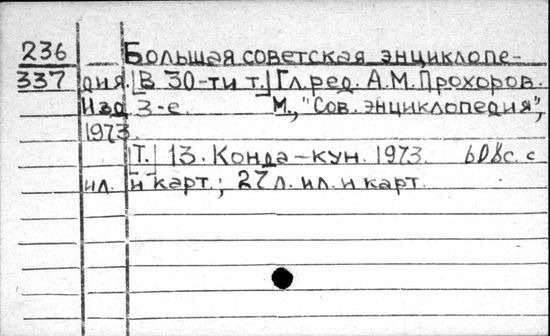 236 Большая советская энциклопе-
337 дия. [В 30-ти т.] Гл. ред. А.М. Прохоров.
Изд 3-е. М., "Сов. энциклопедия",
1973.
[Т.] 13. Конда-кун. 1973. 608 с. с
ил. и карт.; 27 л. ил. и карт.